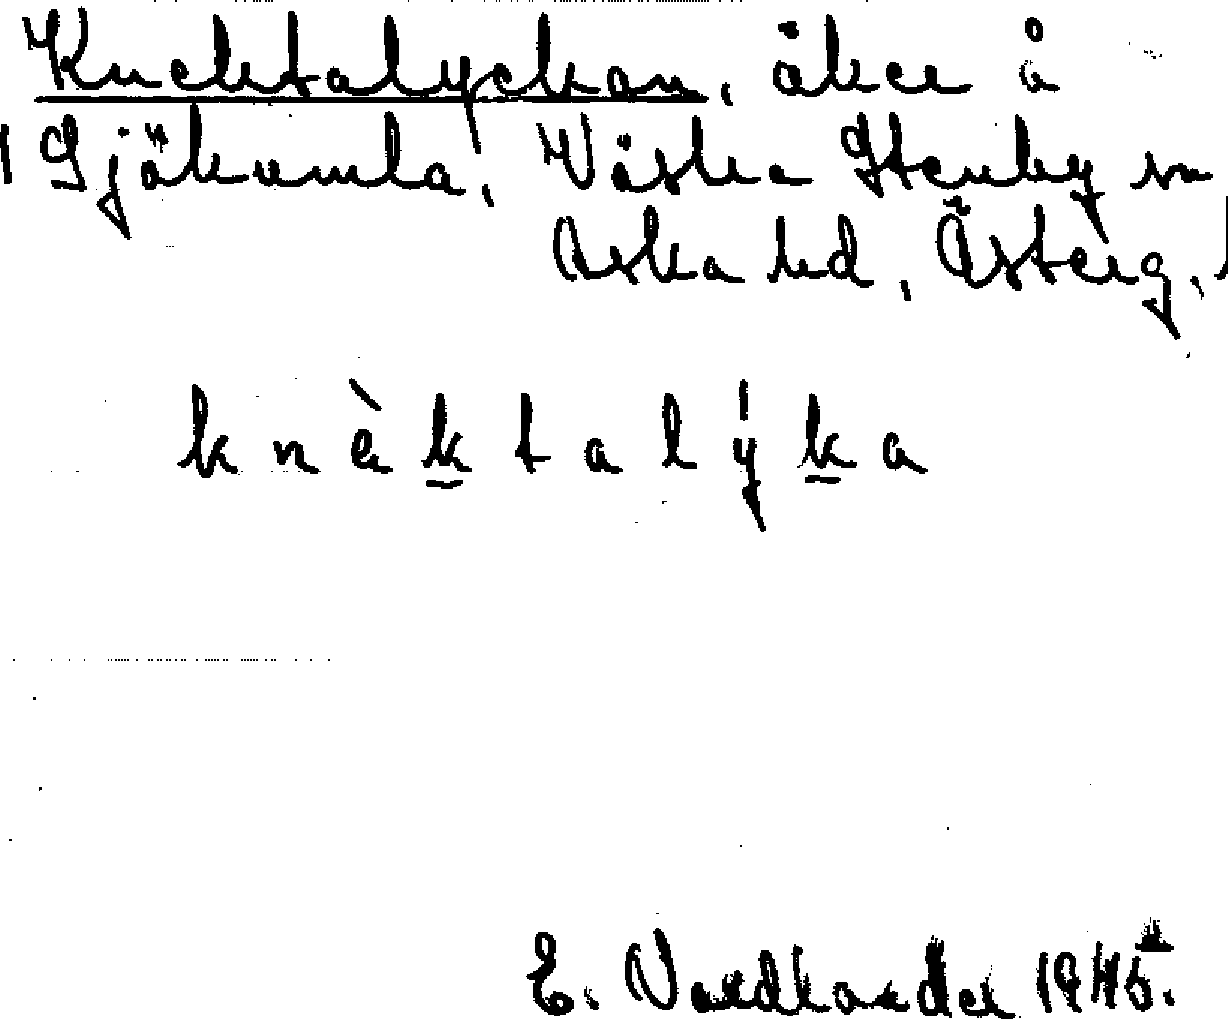 Knektalyckan, åker å
Sjökumla, Västra Stenby sn
Aska hd, Österg.
knèktalýka
E. Nordlander 1945.